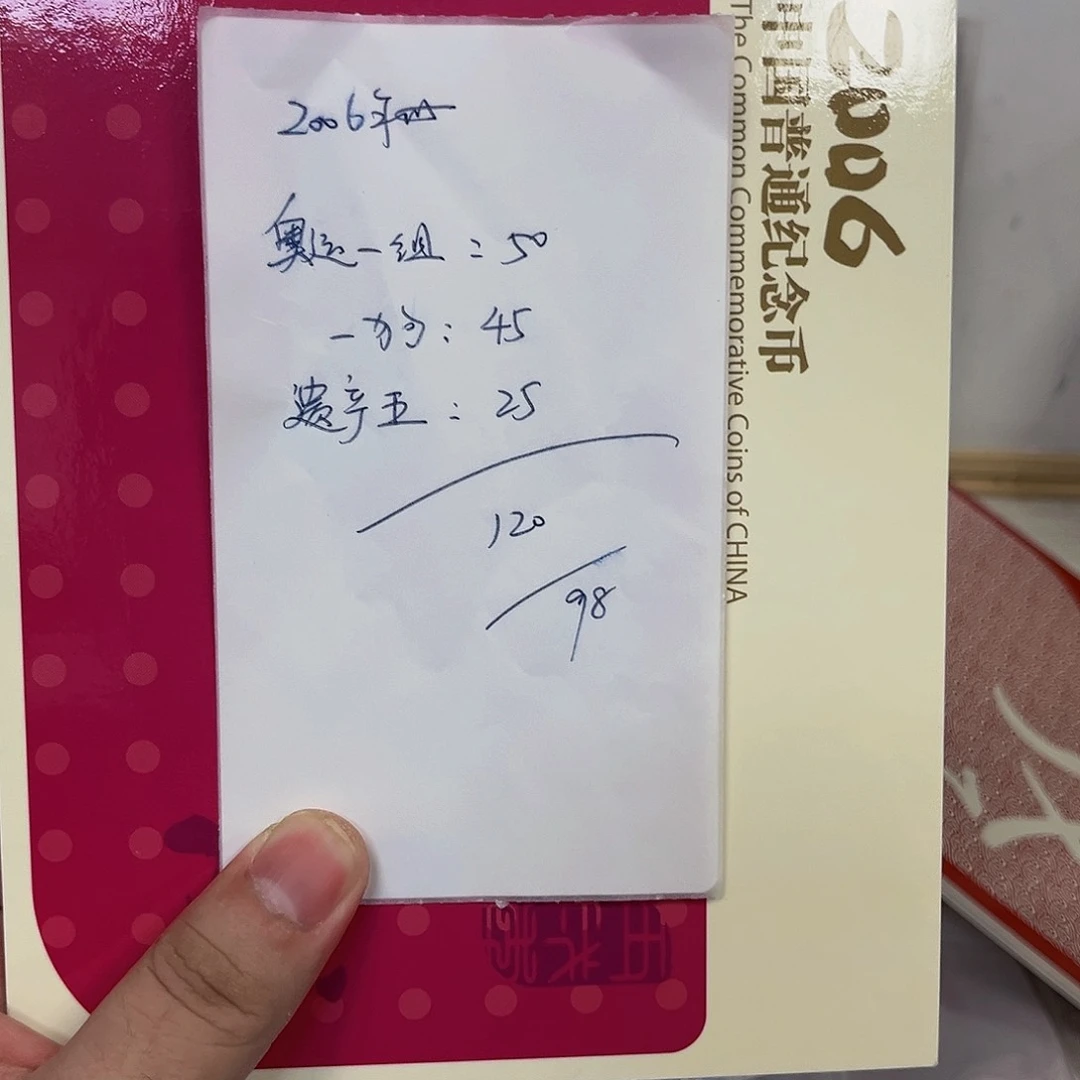 2006年册
奥运一组：50
一狗：45
遗产五：25
120
98
2006
中国普通纪念币
The Common Commemorative Coins of CHINA